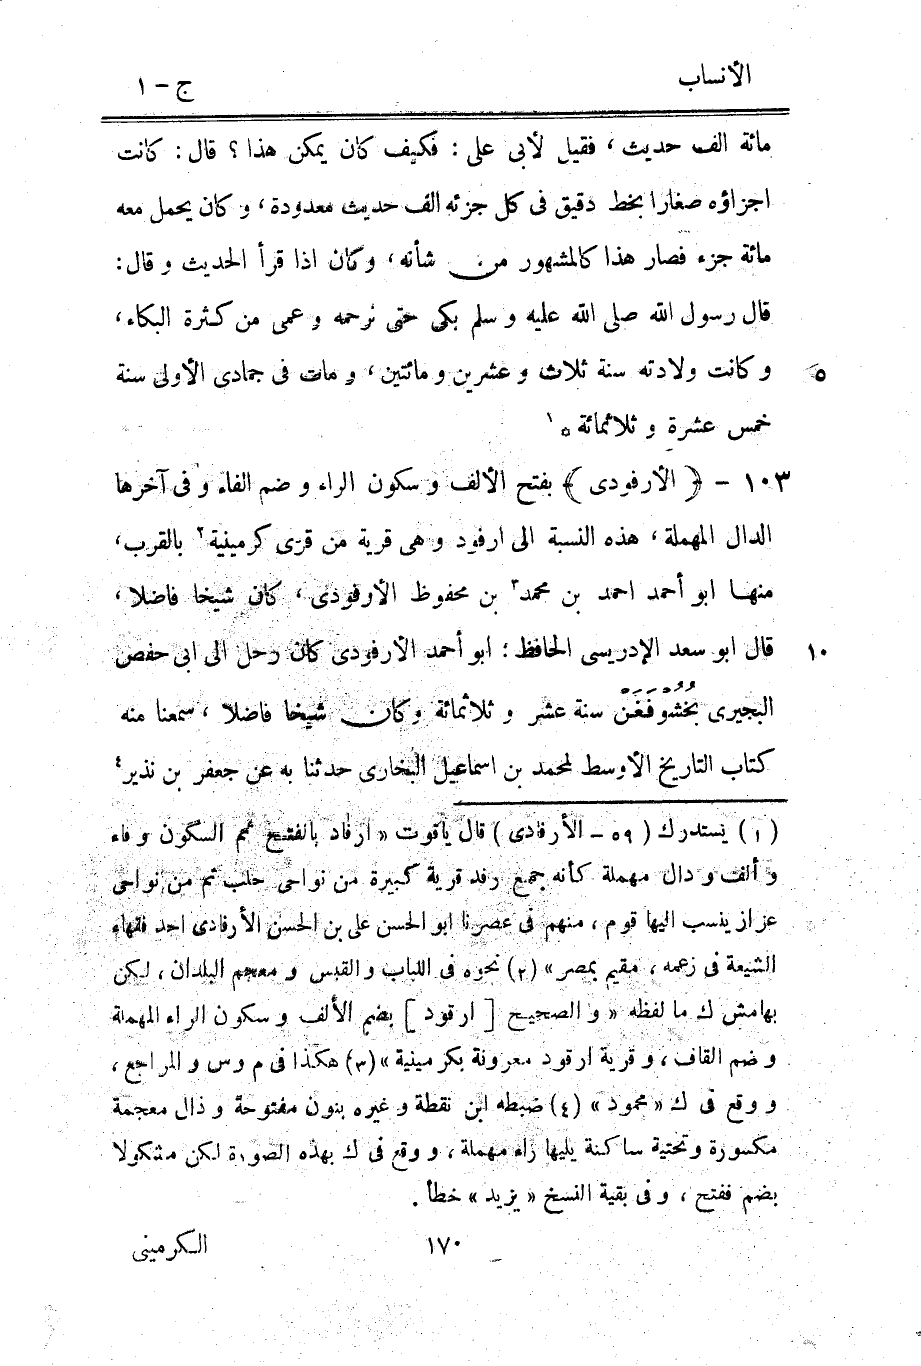 الأنساب ج - ١
مائة الف حديث، فقيل لأبى على: فكيف كان يمكن هذا؟ قال: كانت
اجزاؤه صغارا بخط دقيق فى كل جزئه الف حديث معدودة، و كان يحمل معه
مائة جزء فصار هذا كالمشهور من شأنه، و كان اذا قرأ الحديث و قال:
قال رسول الله صلى الله عليه و سلم بكى حتى نرحمه و عمى من كثرة البكاء،
و كانت ولادته سنة ثلاث و عشرين و مائتين، و مات فى جمادى الأولى سنة ٥
خمس عشرة و ثلاثمائة ٥ ١
١٠٣ - ﴿ الأرفودى ﴾ بفتح الألف و سكون الراء و ضم الفاء و فى آخرها
الدال المهملة، هذه النسبة الى ارفود و هى قرية من قرى كرمينية ٢ بالقرب،
منها ابو أحمد احمد بن محمد ٣ بن محفوظ الأرفودى، كان شيخا فاضلا،
قال ابو سعد الإدريسى الحافظ: ابو أحمد الأرفودى كان رحل الى ابى حفص ١٠
البجيرى بخشوفغن سنة عشر و ثلاثمائة و كان شيخا فاضلا، سمعنا منه
كتاب التاريخ الأوسط لمحمد بن اسماعيل البخارى حدثنا به عن جعفر بن نذير ٤
(١) يستدرك (٥٩ - الأرفادى) قال ياقوت « ارفاد بالفتح ثم السكون و فاء
و ألف و دال مهملة كأنه جمع رفد قرية كبيرة من نواحى حلب ثم من نواحى
عزاز ينسب اليها قوم، منهم فى عصرنا ابو الحسن على بن الحسن الأرفادى احد فقهاء
الشيعة فى زعمه، مقيم بمصر » (٢) نحوه فى اللباب و القبس و معجم البلدان، لكن
بهامش ك ما لفظه « و الصحيح [ ارقود ] بضم الألف و سكون الراء المهملة
و ضم القاف، و قرية ارقود معروفة بكرمينية » (٣) هكذا فى م وس و المراجع،
و وقع فى ك « محمود » (٤) ضبطه ابن نقطة و غيره بنون مفتوحة و ذال معجمة
مكسورة و تحتية ساكنة يليها راء مهملة، و وقع فى ك بهذه الصورة لكن مشكولا
بضم ففتح، و فى بقية النسخ « يزيد » خطأ.
١٧٠ الكرمينى